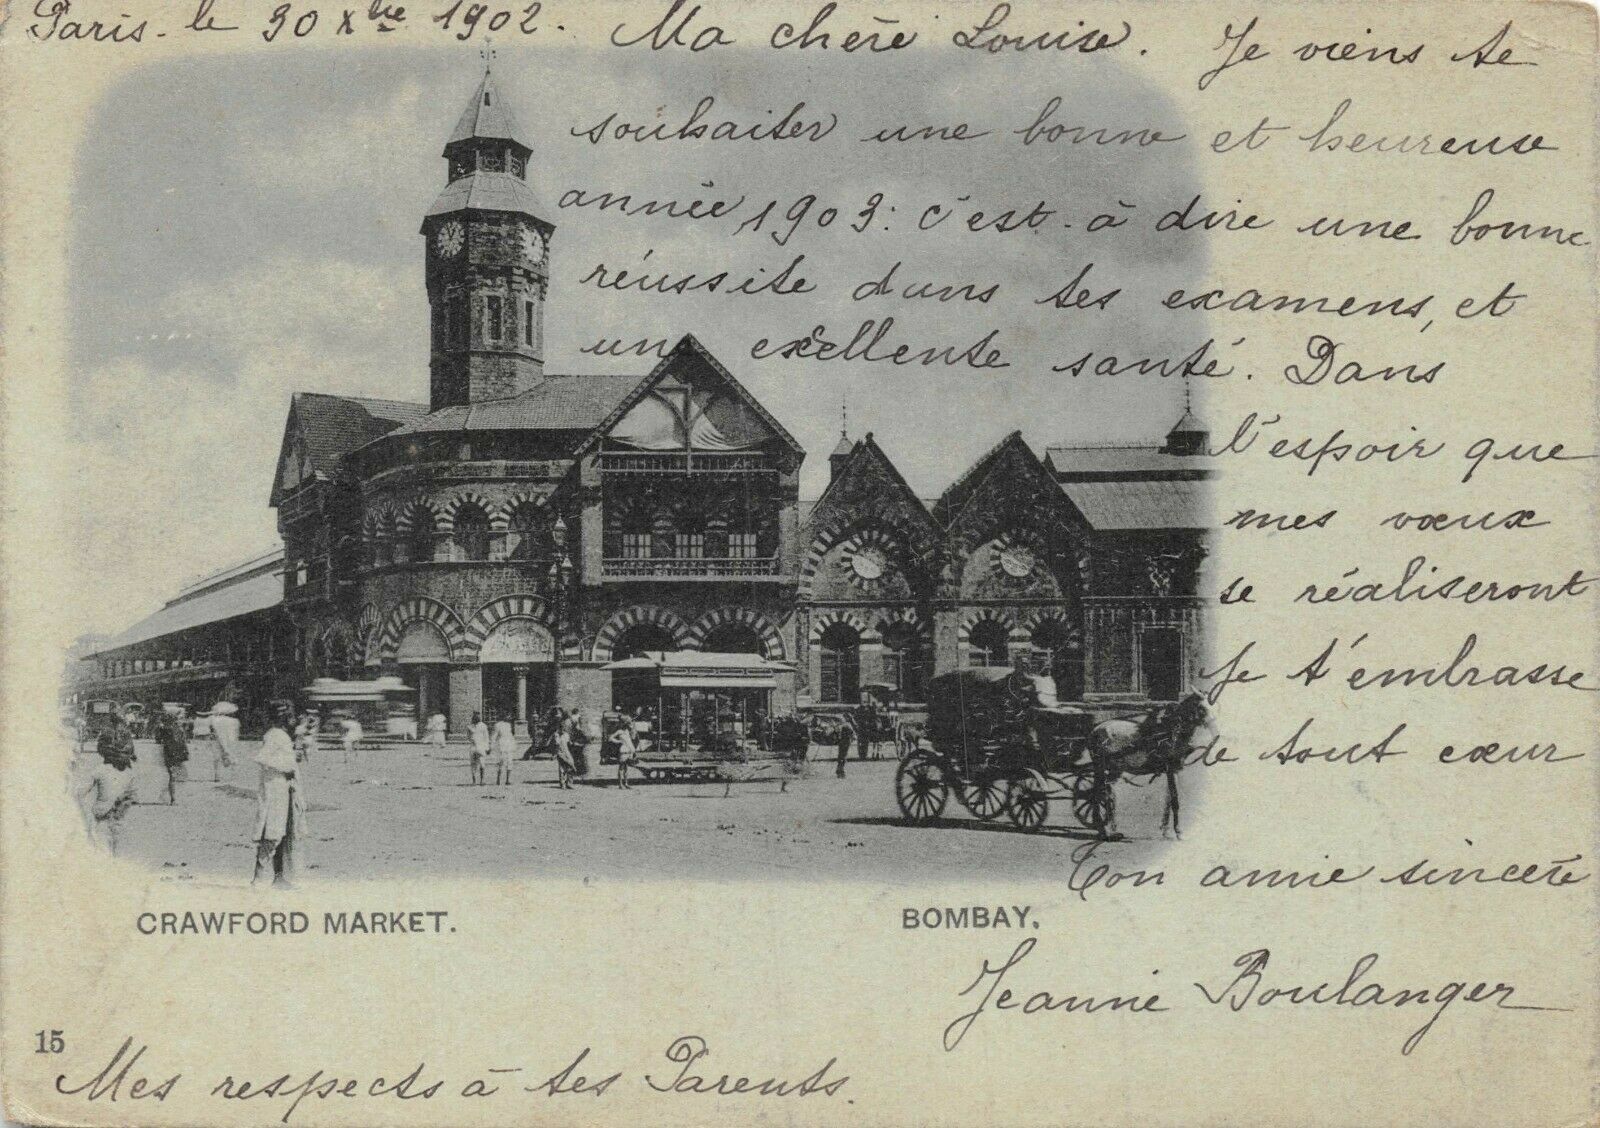 Paris. le 30 Xbre 1902. Ma chère Louise. Je viens te
souhaiter une bonne et heureuse
année 1903: c'est-à dire une bonne
réussite dans tes examens, et
une excellente santé. Dans
l'espoir que
mes vœux
se réaliseront
Je t'embrasse
de tout cœur
Ton amie sincère
CRAWFORD MARKET. BOMBAY.
Jeanne Boulanger
15
Mes respects à tes Parents.